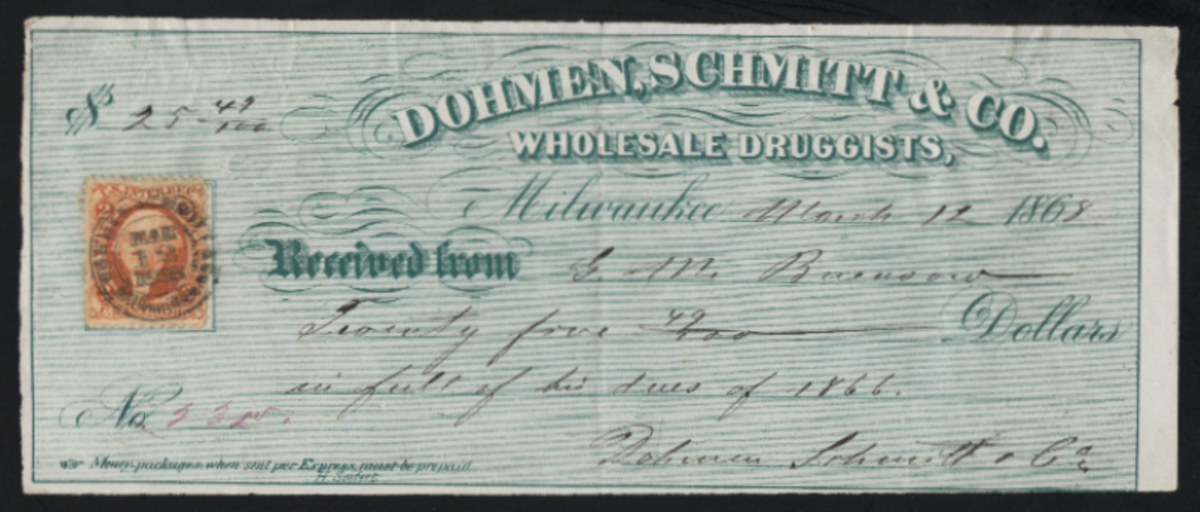 $ 25 49/100
DOHMEN, SCHMITT & CO.
WHOLESALE DRUGGISTS,
Milwaukee March 12 1868
Received from G. M.
Twenty five 49/100 Dollars
in full of his dues of 1866.
No.
Money packages when sent per Express, must be prepaid.
H. Seifert
Dohmen Schmitt & Co
MAR